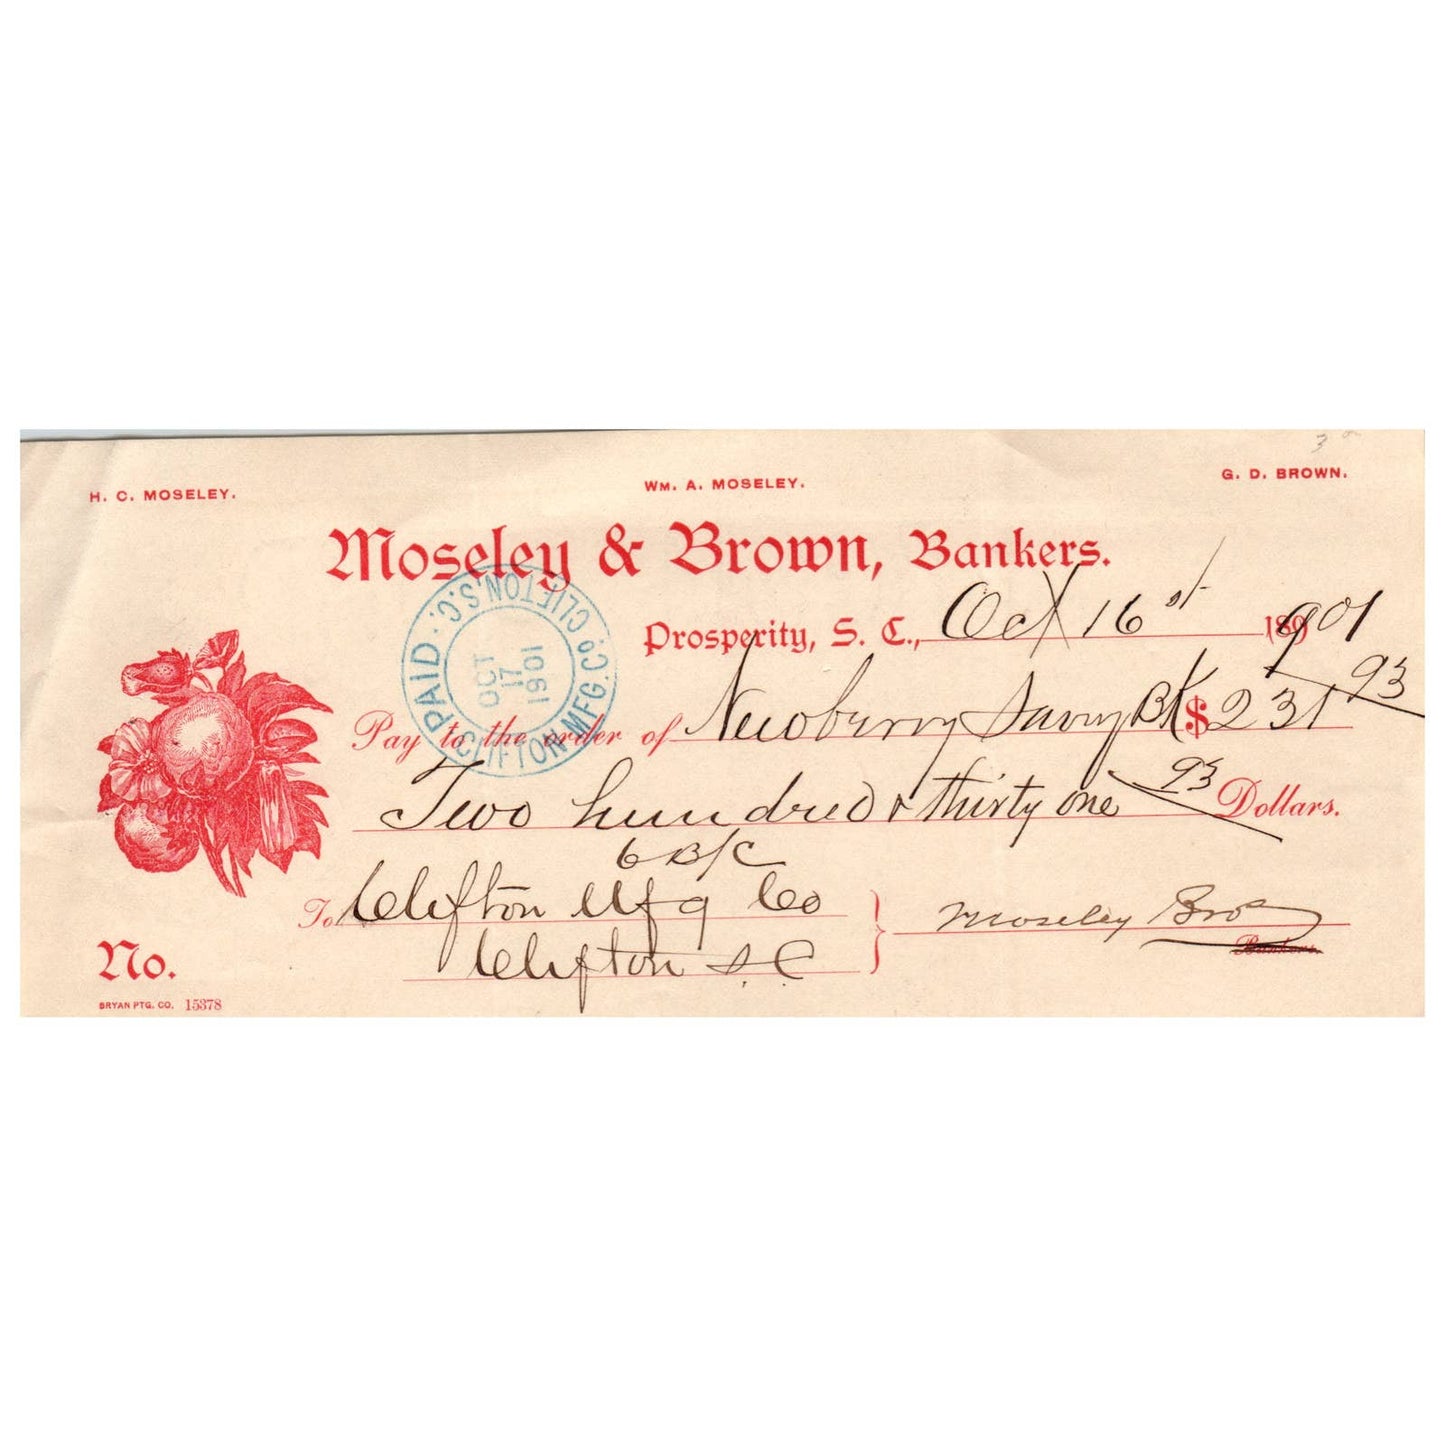 H. C. MOSELEY. WM. A. MOSELEY. G. D. BROWN.
Moseley & Brown, Bankers.
Prosperity, S. C., Oct 16 st 1901
Pay to the order of Newberry Saving Bk $ 231 93
Two hundred & thirty one 93 Dollars.
6 B/C
To Clifton Mfg Co
Clifton S.C
Moseley Bros
Bankers.
No.
BRYAN PTG. CO. 15378
PAID · CLIFTON MFG. CO CLIFTON S.C.
OCT
17
1901